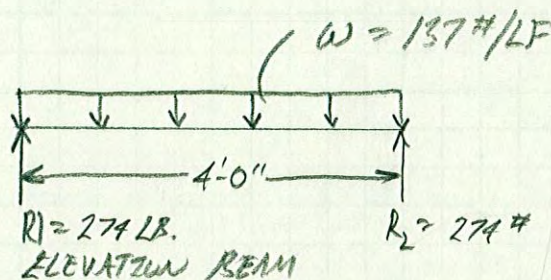 ω = 137 #/LF
4'-0"
R1 = 274 LB.
R2 = 274 #
ELEVATION BEAM